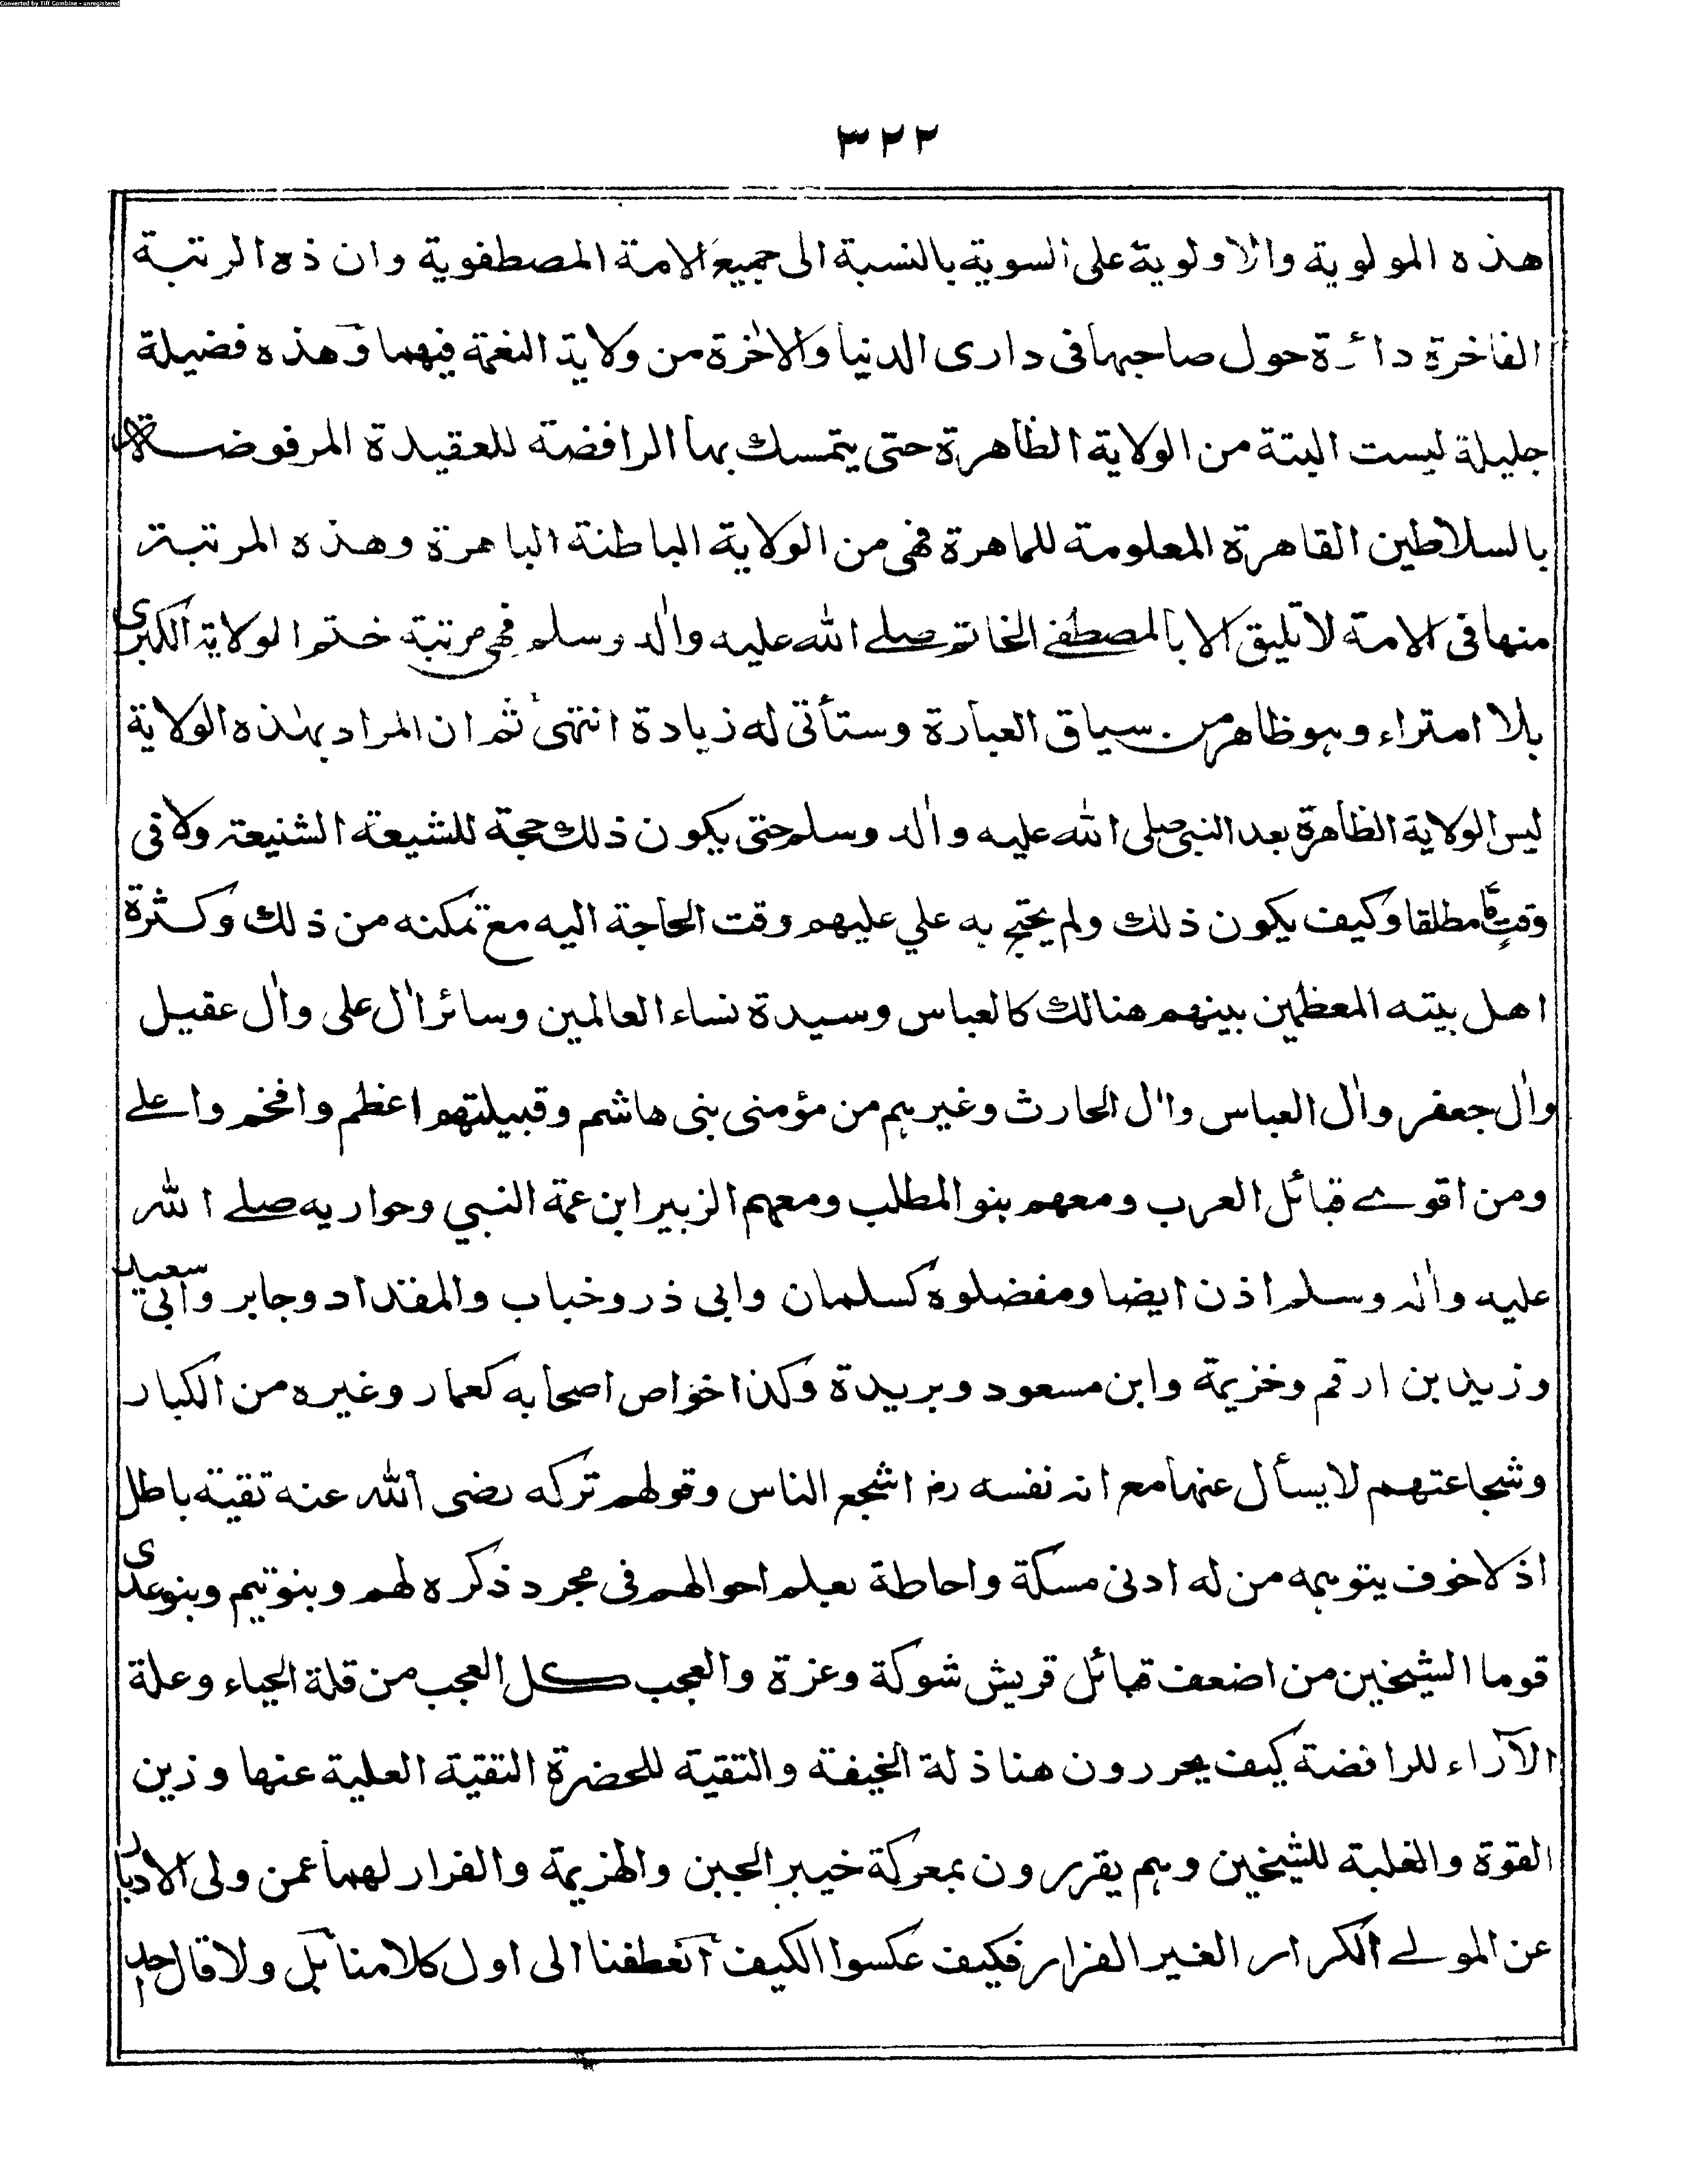 Converted by Tiff Combine - unregistered
٣٢٢
هذه المولوية والاولوية على السوية بالنسبة الى جميع الامة المصطفوية وان ذه الرتبة
الفاخرة دائرة حول صاحبها فى دارى الدنيا والاٰخرة من ولاية النعمة فيهما وهذه فضيلة
جليلة ليست البتة من الولاية الظاهرة حتى يتمسك بها الرافضة للعقيدة المرفوضة
بالسلاطين القاهرة المعلومة للماهرة فهى من الولاية الباطنة الباهرة وهذه المرتبة
منها فى الامة لا تليق الا بالمصطفے الخاتم صلے الله عليه واٰله وسلم فهى مرتبة ختم الولاية الكبرى
بلا امتراء وهو ظاهر من سياق العبارة وستأتى له زيادة انتهى ثم ان المراد بهذه الولاية
ليس الولاية الظاهرة بعد النبي صلى الله عليه واٰله وسلم حتى يكون ذلك حجة للشيعة الشنيعة ولا فى
وقتٍ ما مطلقا وكيف يكون ذلك ولم يحتج به علي عليهم وقت الحاجة اليه مع تمكنه من ذلك وكثرة
اهل بيته المعظمين بينهم هنالك كالعباس وسيدة نساء العالمين وسائر اٰل على واٰل عقيل
واٰل جعفر واٰل العباس واٰل الحارث وغيرهم من مؤمنى بنى هاشم وقبيلتهم اعظم وافخم واعلے
ومن اقوے قبائل العرب ومعهم بنو المطلب ومعهم الزبير ابن عمة النبي وحواريه صلے الله
عليه واٰله وسلم اذن ايضا ومفضلوه كسلمان وابى ذر وخباب والمقداد وجابر وابى سعيد
وزيد بن ارقم وخزيمة وابن مسعود وبريدة وكذا خواص اصحابه كعمار وغيره من الكبار
وشجاعتهم لا يسأل عنها مع انه نفسه رضـ اشجع الناس وقولهم تركه رضى الله عنه تقية باطل
اذ لا خوف يتوهمه من له ادنى مسكة واحاطة بعلم احوالهم فى مجرد ذكره لهم وبنو تيم وبنو عدى
قوما الشيخين من اضعف قبائل قريش شوكة وعزة والعجب كل العجب من قلة الحياء وعلة
الآراء للرافضة كيف يحررون هنا ذلة الخيفة والتقية للحضرة التقية العلية عنها وزين
القوة والغلبة للشيخين وهم يقررون بمعركة خيبر الجبن والهزيمة والفرار لهما عمن ولى الادبار
عن المولے الكرار الغير الفرار فكيف عكسوا الكيف انعطفنا الى اول كلامنا بل ولا قال احد